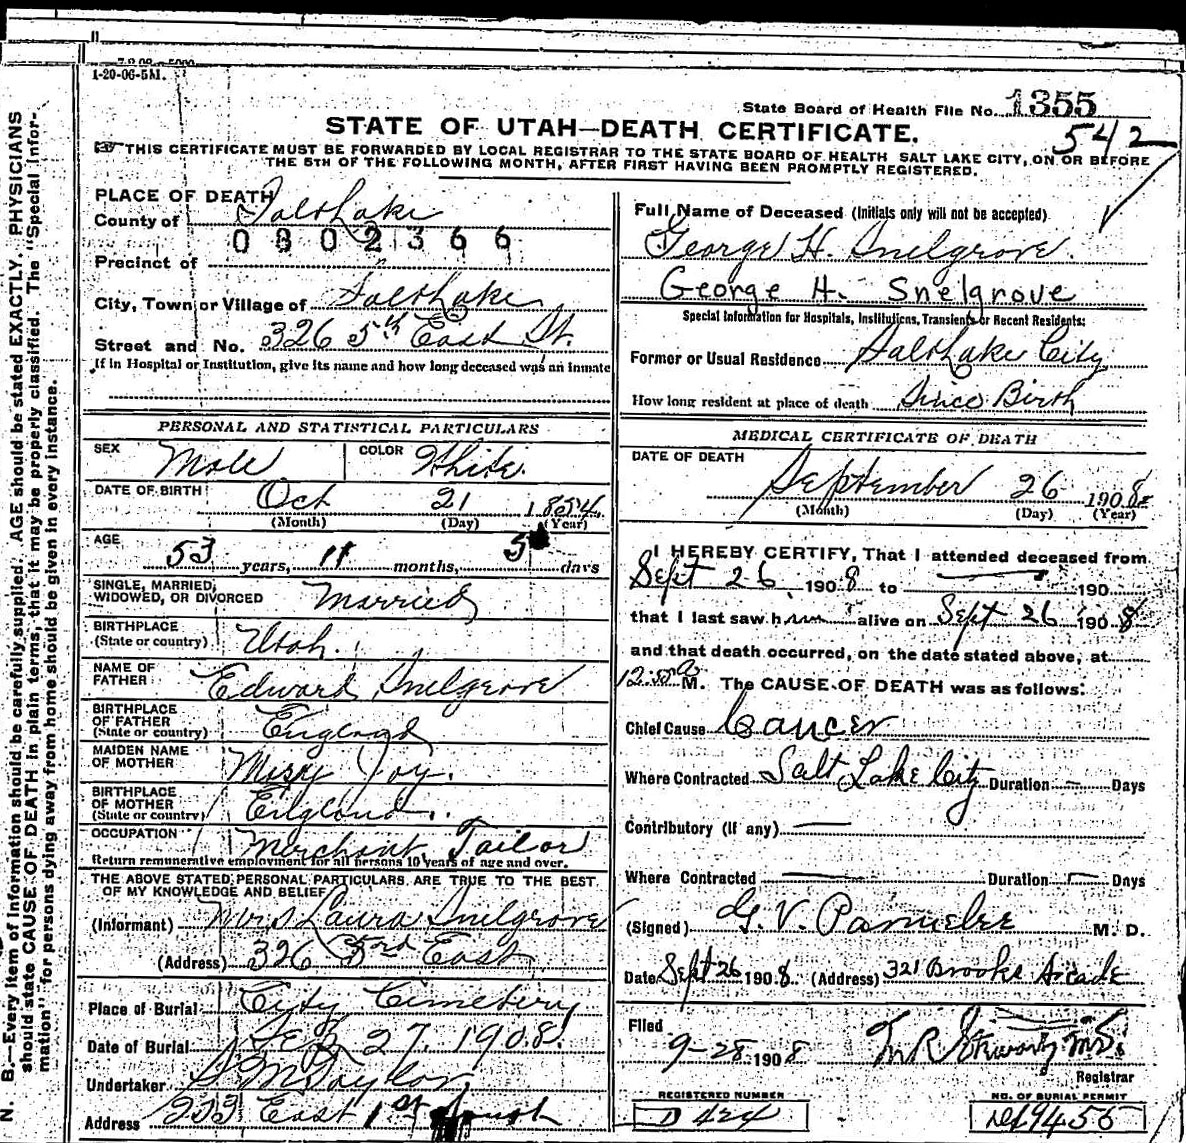 1-20-06-5M.
State Board of Health File No. 1355
STATE OF UTAH—DEATH CERTIFICATE.
542
THIS CERTIFICATE MUST BE FORWARDED BY LOCAL REGISTRAR TO THE STATE BOARD OF HEALTH SALT LAKE CITY, ON OR BEFORE
THE 5TH OF THE FOLLOWING MONTH, AFTER FIRST HAVING BEEN PROMPTLY REGISTERED.
N. B.—Every item of information should be carefully supplied. AGE should be stated EXACTLY. PHYSICIANS
should state CAUSE OF DEATH in plain terms, that it may be properly classified. The "Special Infor-
mation" for persons dying away from home should be given in every instance.
PLACE OF DEATH
County of Salt Lake
0802366
Precinct of
City, Town or Village of Salt Lake
Street and No. 326 5th East St.
If in Hospital or Institution, give its name and how long deceased was an inmate
PERSONAL AND STATISTICAL PARTICULARS
SEX Male COLOR White
DATE OF BIRTH Oct 21 1854
(Month) (Day) (Year)
AGE 53 years, 11 months, 5 days
SINGLE, MARRIED,
WIDOWED, OR DIVORCED Married
BIRTHPLACE
(State or country) Utah.
NAME OF
FATHER Edward Snelgrove
BIRTHPLACE
OF FATHER
(State or country) England
MAIDEN NAME
OF MOTHER Mary Joy.
BIRTHPLACE
OF MOTHER
(State or country) England.
OCCUPATION
Merchant Tailor
Return remunerative employment for all persons 10 years of age and over.
THE ABOVE STATED PERSONAL PARTICULARS ARE TRUE TO THE BEST
OF MY KNOWLEDGE AND BELIEF
(Informant) Mrs Laura Snelgrove
(Address) 326 East
Place of Burial City Cemetery
Date of Burial 27. 1908.
Undertaker S M Taylor
Address East 1st South
Full Name of Deceased (Initials only will not be accepted)
George H. Snelgrove.
George H. Snelgrove
Special Information for Hospitals, Institutions, Transients or Recent Residents:
Former or Usual Residence Salt Lake City
How long resident at place of death Since Birth
MEDICAL CERTIFICATE OF DEATH
DATE OF DEATH
September 26 1908
(Month) (Day) (Year)
I HEREBY CERTIFY, That I attended deceased from
Sept 26, 1908 to 190
that I last saw him alive on Sept 26 1908
and that death occurred, on the date stated above, at
M. The CAUSE OF DEATH was as follows:
Chief Cause Cancer
Where Contracted Salt Lake City Duration — Days
Contributory (if any) —
Where Contracted — Duration — Days
(Signed) G. V. Parmelee M. D.
Date Sept 26 1908. (Address) 321 Brooks Arcade
Filed
9-28 1908
Registrar
REGISTERED NUMBER
D 424
NO. OF BURIAL PERMIT